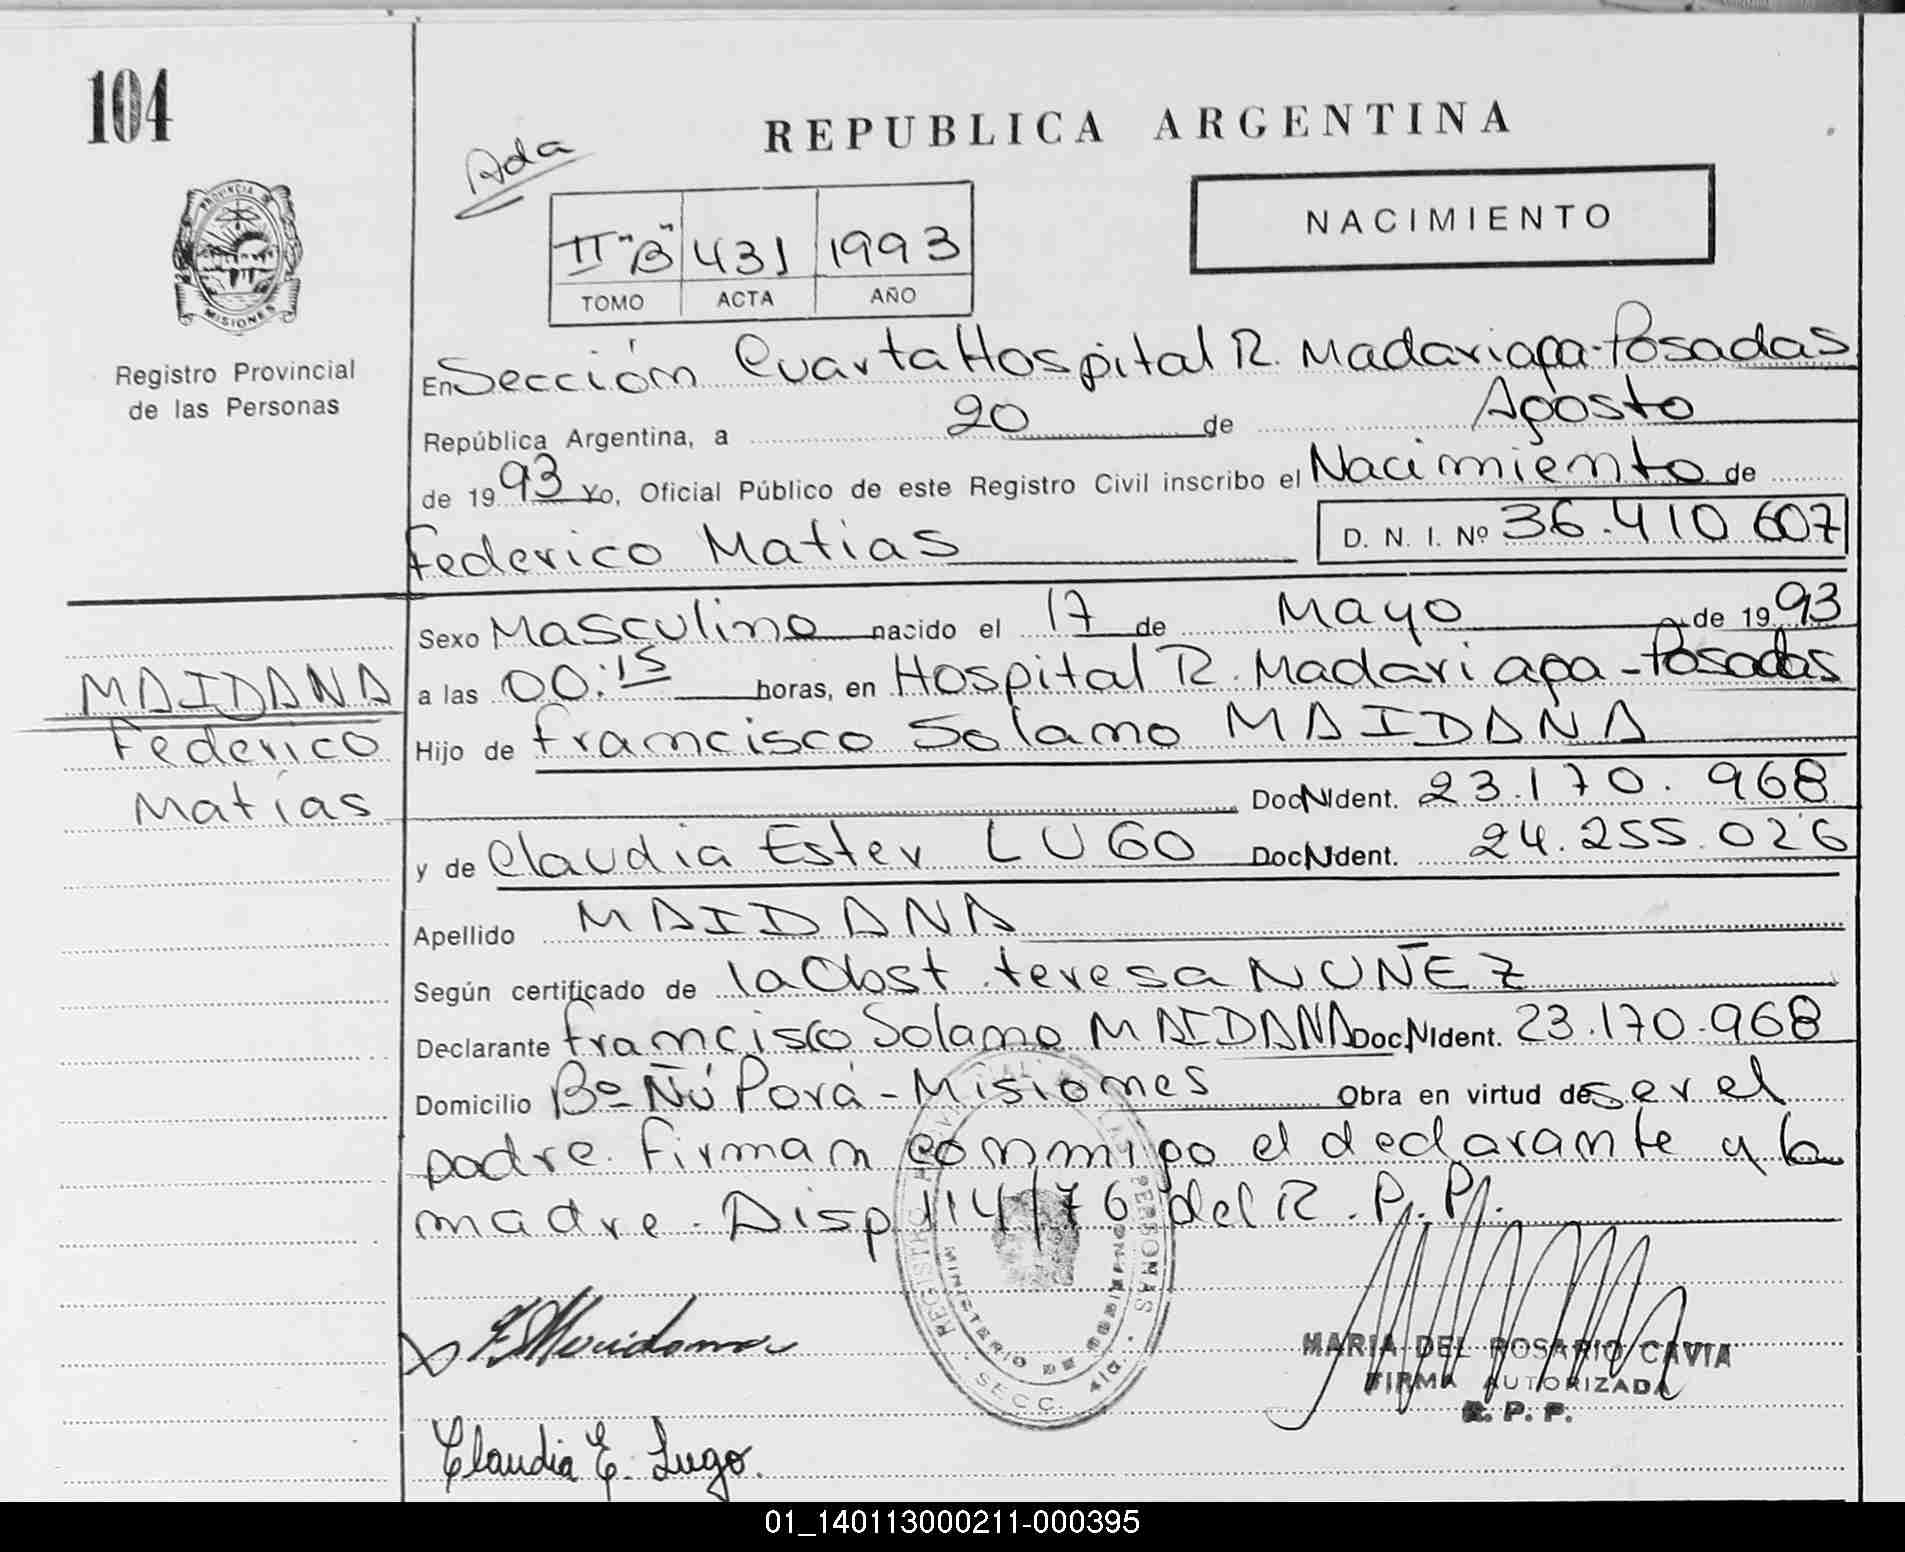 104
REPUBLICA ARGENTINA
Ada
PROVINCIA DE
MISIONES
II "B" 431 1993
TOMO ACTA AÑO
NACIMIENTO
Registro Provincial
de las Personas
En Sección Cuarta Hospital R. Madariaga-Posadas
República Argentina, a 20 de Agosto
de 1993 Yo, Oficial Público de este Registro Civil inscribo el Nacimiento de
Federico Matias D. N. I. Nº 36.410 607
Sexo Masculino nacido el 17 de Mayo de 1993
a las 00:15 horas, en Hospital R. Madariaga-Posadas
MAIDANA
Federico
Matías
Hijo de Francisco Solano MAIDANA
Doc. N. Ident. 23.170.968
y de Claudia Ester LUGO Doc. N. Ident. 24.255.026
Apellido MAIDANA
Según certificado de la Obst. teresa NUÑEZ
Declarante Francisco Solano MAIDANA Doc. N. Ident. 23.170.968
Domicilio Bº Ñú Porá-Misiones Obra en virtud de ser el
padre. firman conmigo el declarante y la
madre. Disp 114/76 del R.P.P.
REGISTRO PROVINCIAL DE LAS PERSONAS
MINISTERIO DE GOBIERNO
SECC. 4ta.
MARIA DEL ROSARIO CAVIA
FIRMA AUTORIZADA
R. P. P.
Claudia E. Lugo.
01_140113000211-000395